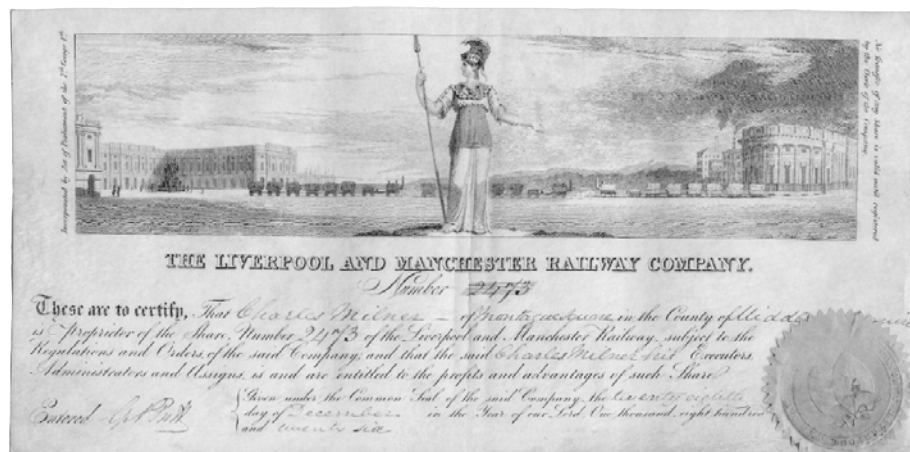 Incorporated by Act of Parliament of the 7th George 4th
No transfer of any Share is valid until registered
by the Clerk of the Company
THE LIVERPOOL AND MANCHESTER RAILWAY COMPANY.
Number 2473
These are to certify, That Charles Milner of Montague Square in the County of
is proprietor of the Share, Number 2473 of the Liverpool and Manchester Railway, subject to the
Regulations and Orders, of the said Company; and that the said Charles Milner his Executors,
Administrators and Assigns, is and are entitled to the profits and advantages of such Share
Given under the Common Seal of the said Company, the twenty eighth
Entered day of December in the Year of our Lord, One thousand, eight hundred
and twenty six